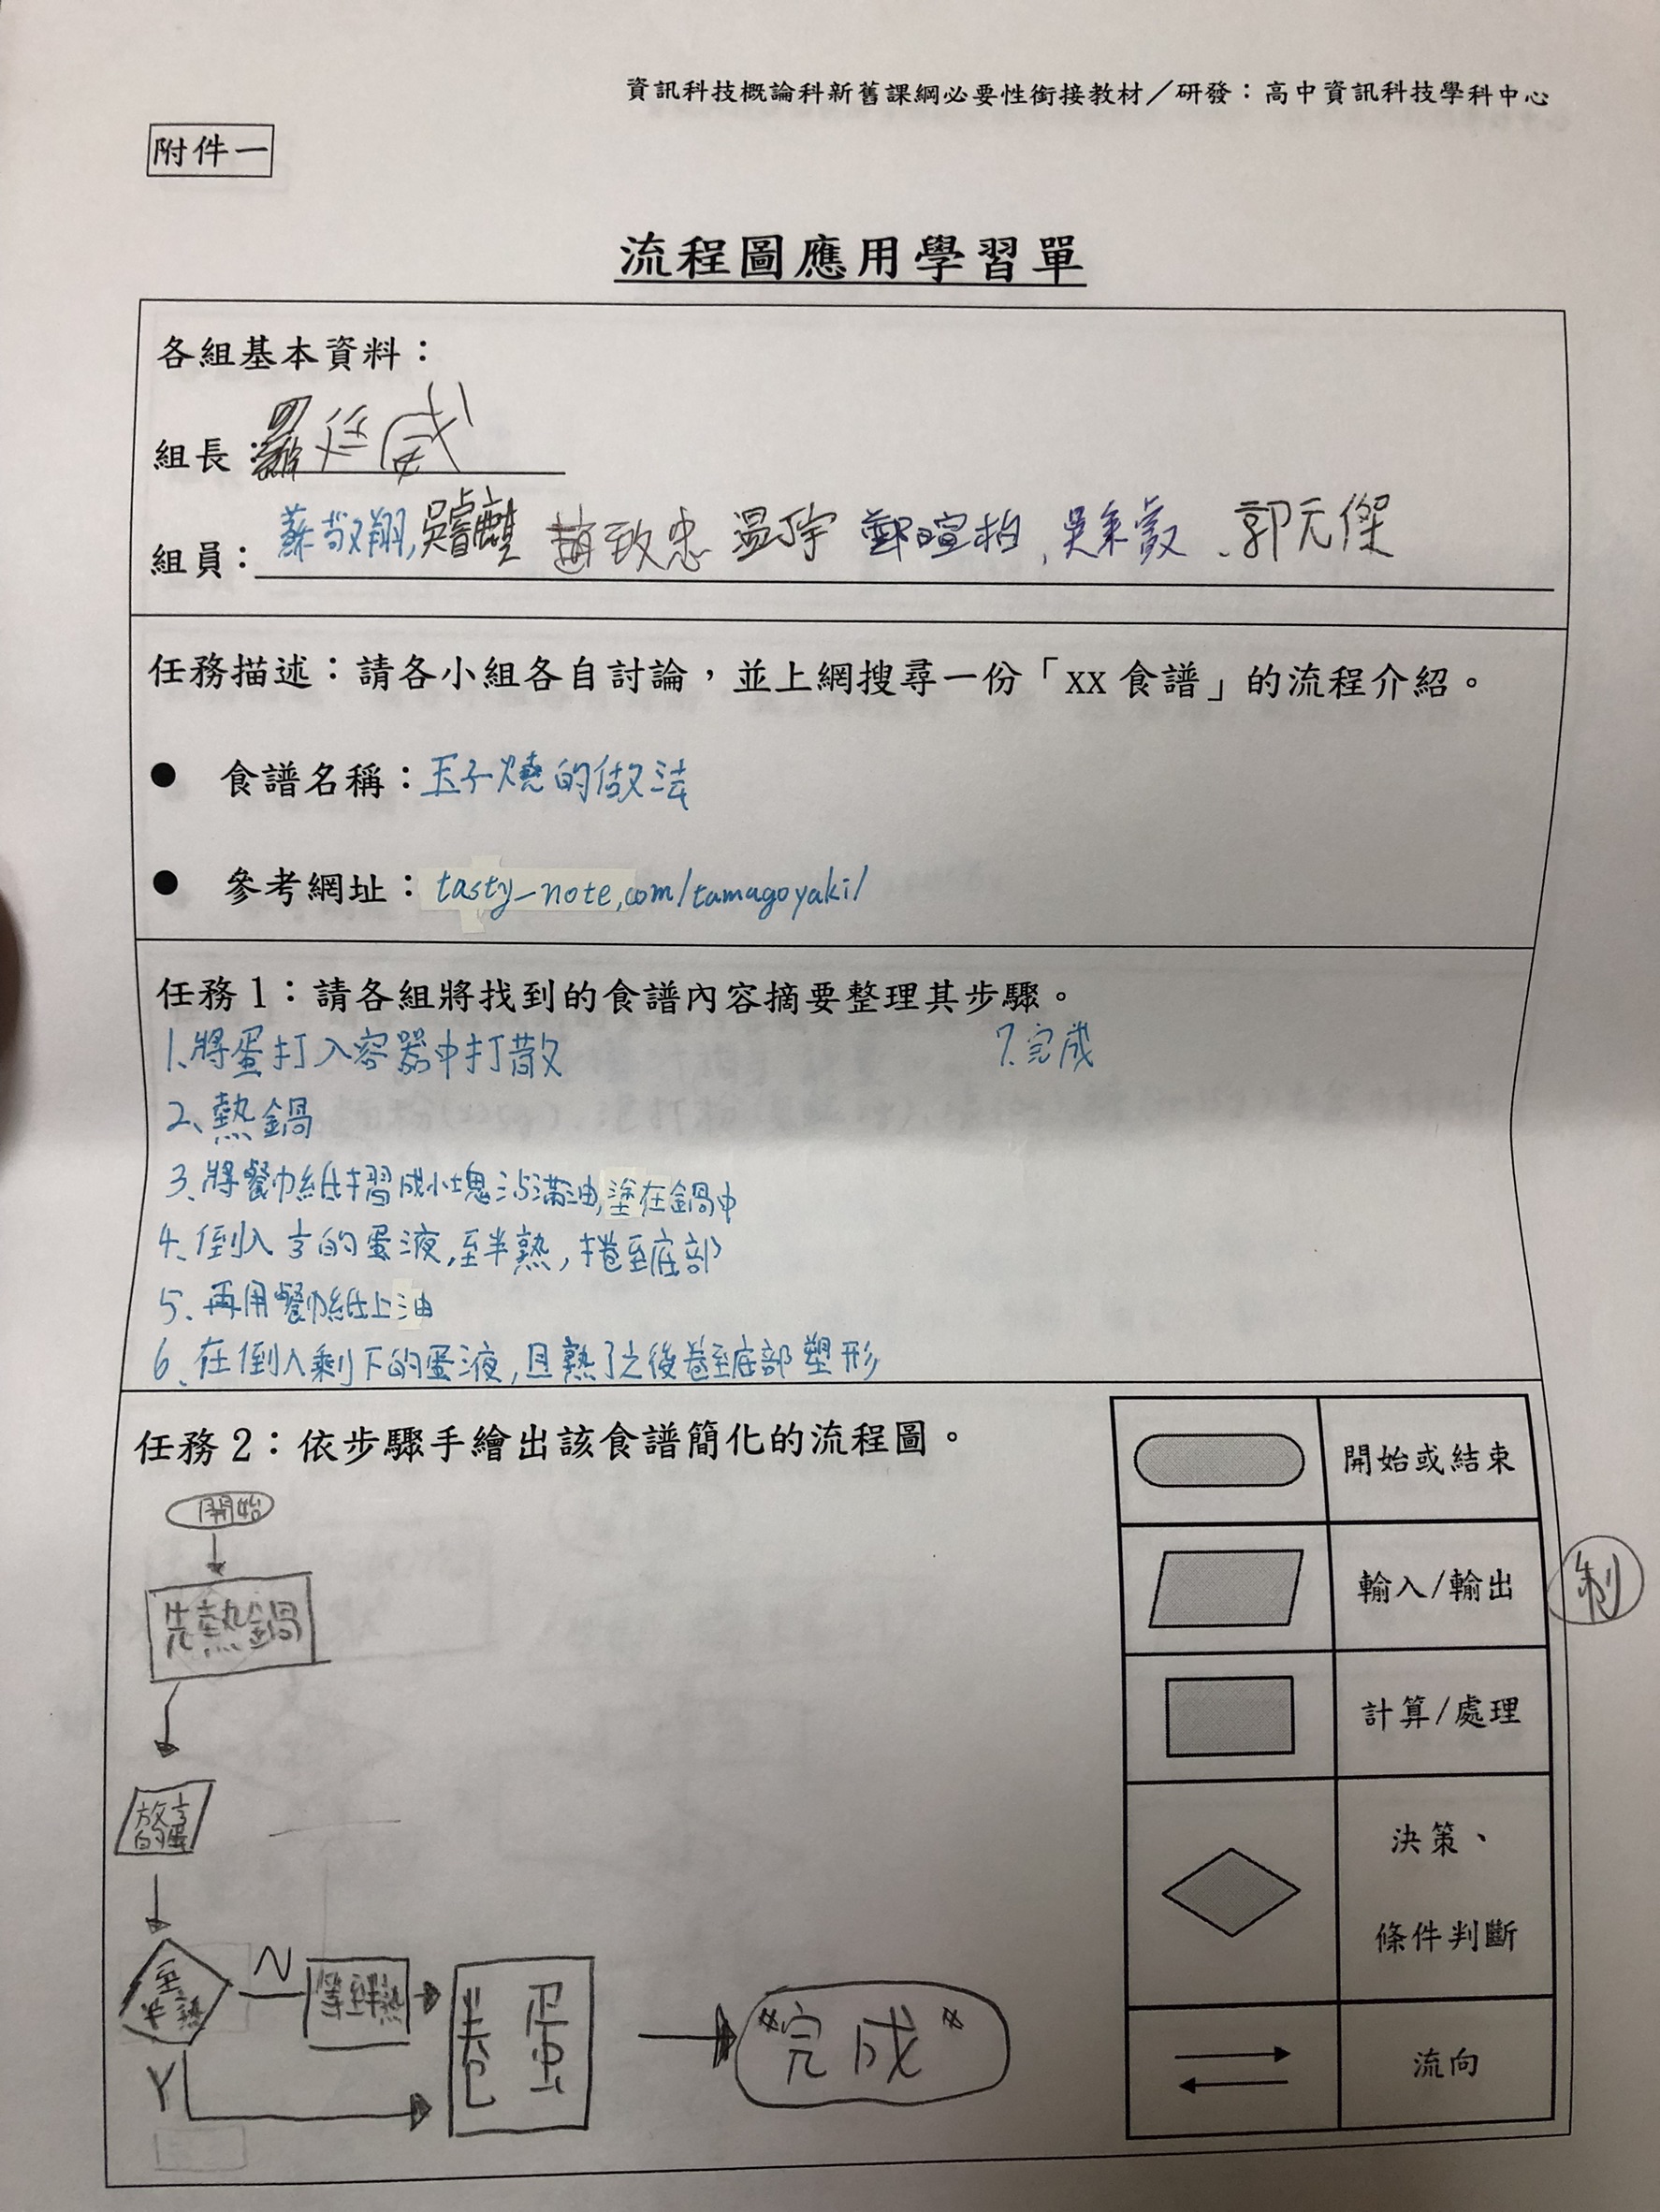 資訊科技概論科新舊課綱必要性銜接教材／研發：高中資訊科技學科中心
附件一
流程圖應用學習單
各組基本資料：
組長：羅廷威
組員：蘇敬翔,吳睿麒 趙致忠 温宇 鄭暄柏、吳秉叡、郭元傑
任務描述：請各小組各自討論，並上網搜尋一份「xx 食譜」的流程介紹。
● 食譜名稱：玉子燒的做法
● 參考網址：tasty-note.com/tamagoyaki/
任務 1：請各組將找到的食譜內容摘要整理其步驟。
1、將蛋打入容器中打散
2、熱鍋
3、將餐巾紙摺成小塊沾滿油,塗在鍋中
4、倒入 1/3 的蛋液,至半熟,捲至底部
5、再用餐巾紙上油
6、在倒入剩下的蛋液,且熟了之後卷至底部塑形
7、完成
任務 2：依步驟手繪出該食譜簡化的流程圖。
開始
先熱鍋
放1/3
的蛋
至
半熟
N
等至半熟
Y
卷蛋
"完成"
開始或結束
輸入/輸出
制
計算/處理
決策、
條件判斷
流向